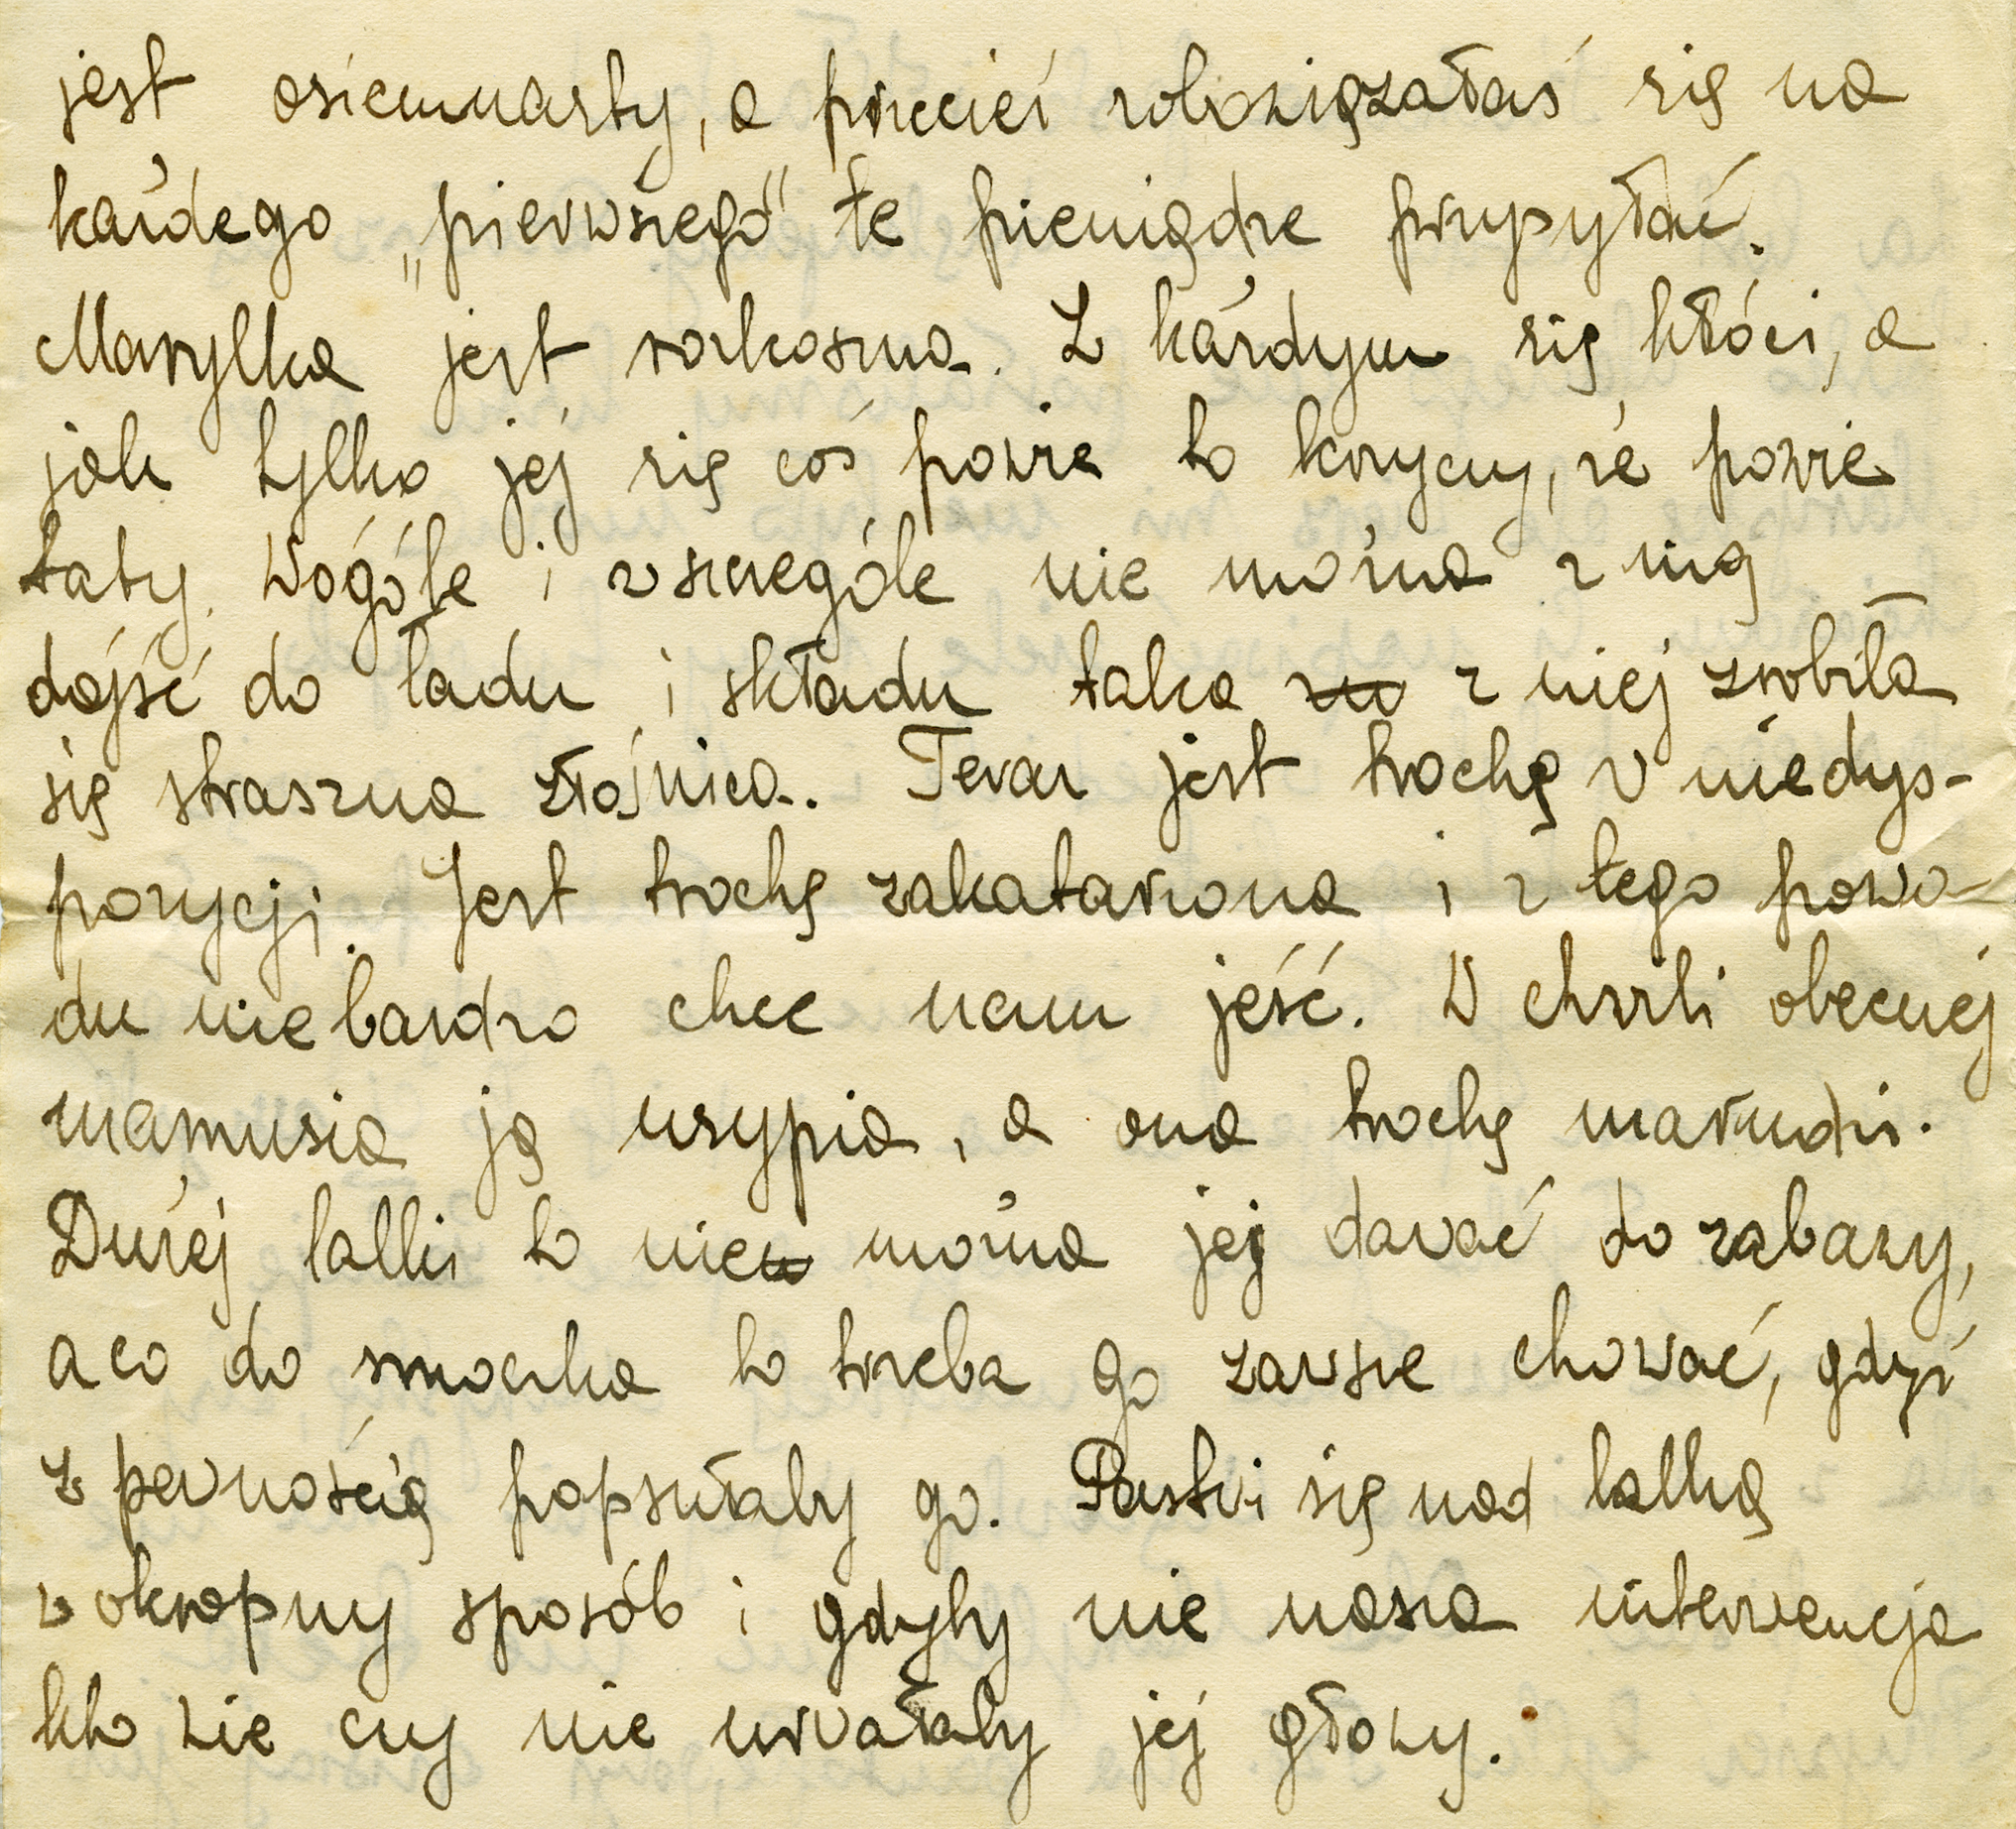 jest osiemnasty, a przecież zobowiązałaś się na
każdego „pierwszego" te pieniądze przysyłać.
Marylka jest rozkoszna. Z każdym się kłóci, a
jak tylko jej się coś powie to krzyczy, że powie
taty. Wogóle i w szczególe nie można z nią
dojść do ładu i składu taka z niej zrobiła
się straszna złośnica. Teraz jest trochę w niedys-
pozycji. Jest trochę zakatarzona i z tego powo-
du nie bardzo chce nam jeść. W chwili obecnej
mamusia ją usypia, a ona trochę marudzi.
Dużej lalki to nie można jej dawać do zabawy,
a co do smoczka to trzeba go zawsze chować, gdyż
z pewnością popsułaby go. Pastwi się nad lalką
w okropny sposób i gdyby nie nasza interwencja
kto wie czy nie urwałaby jej głowy.